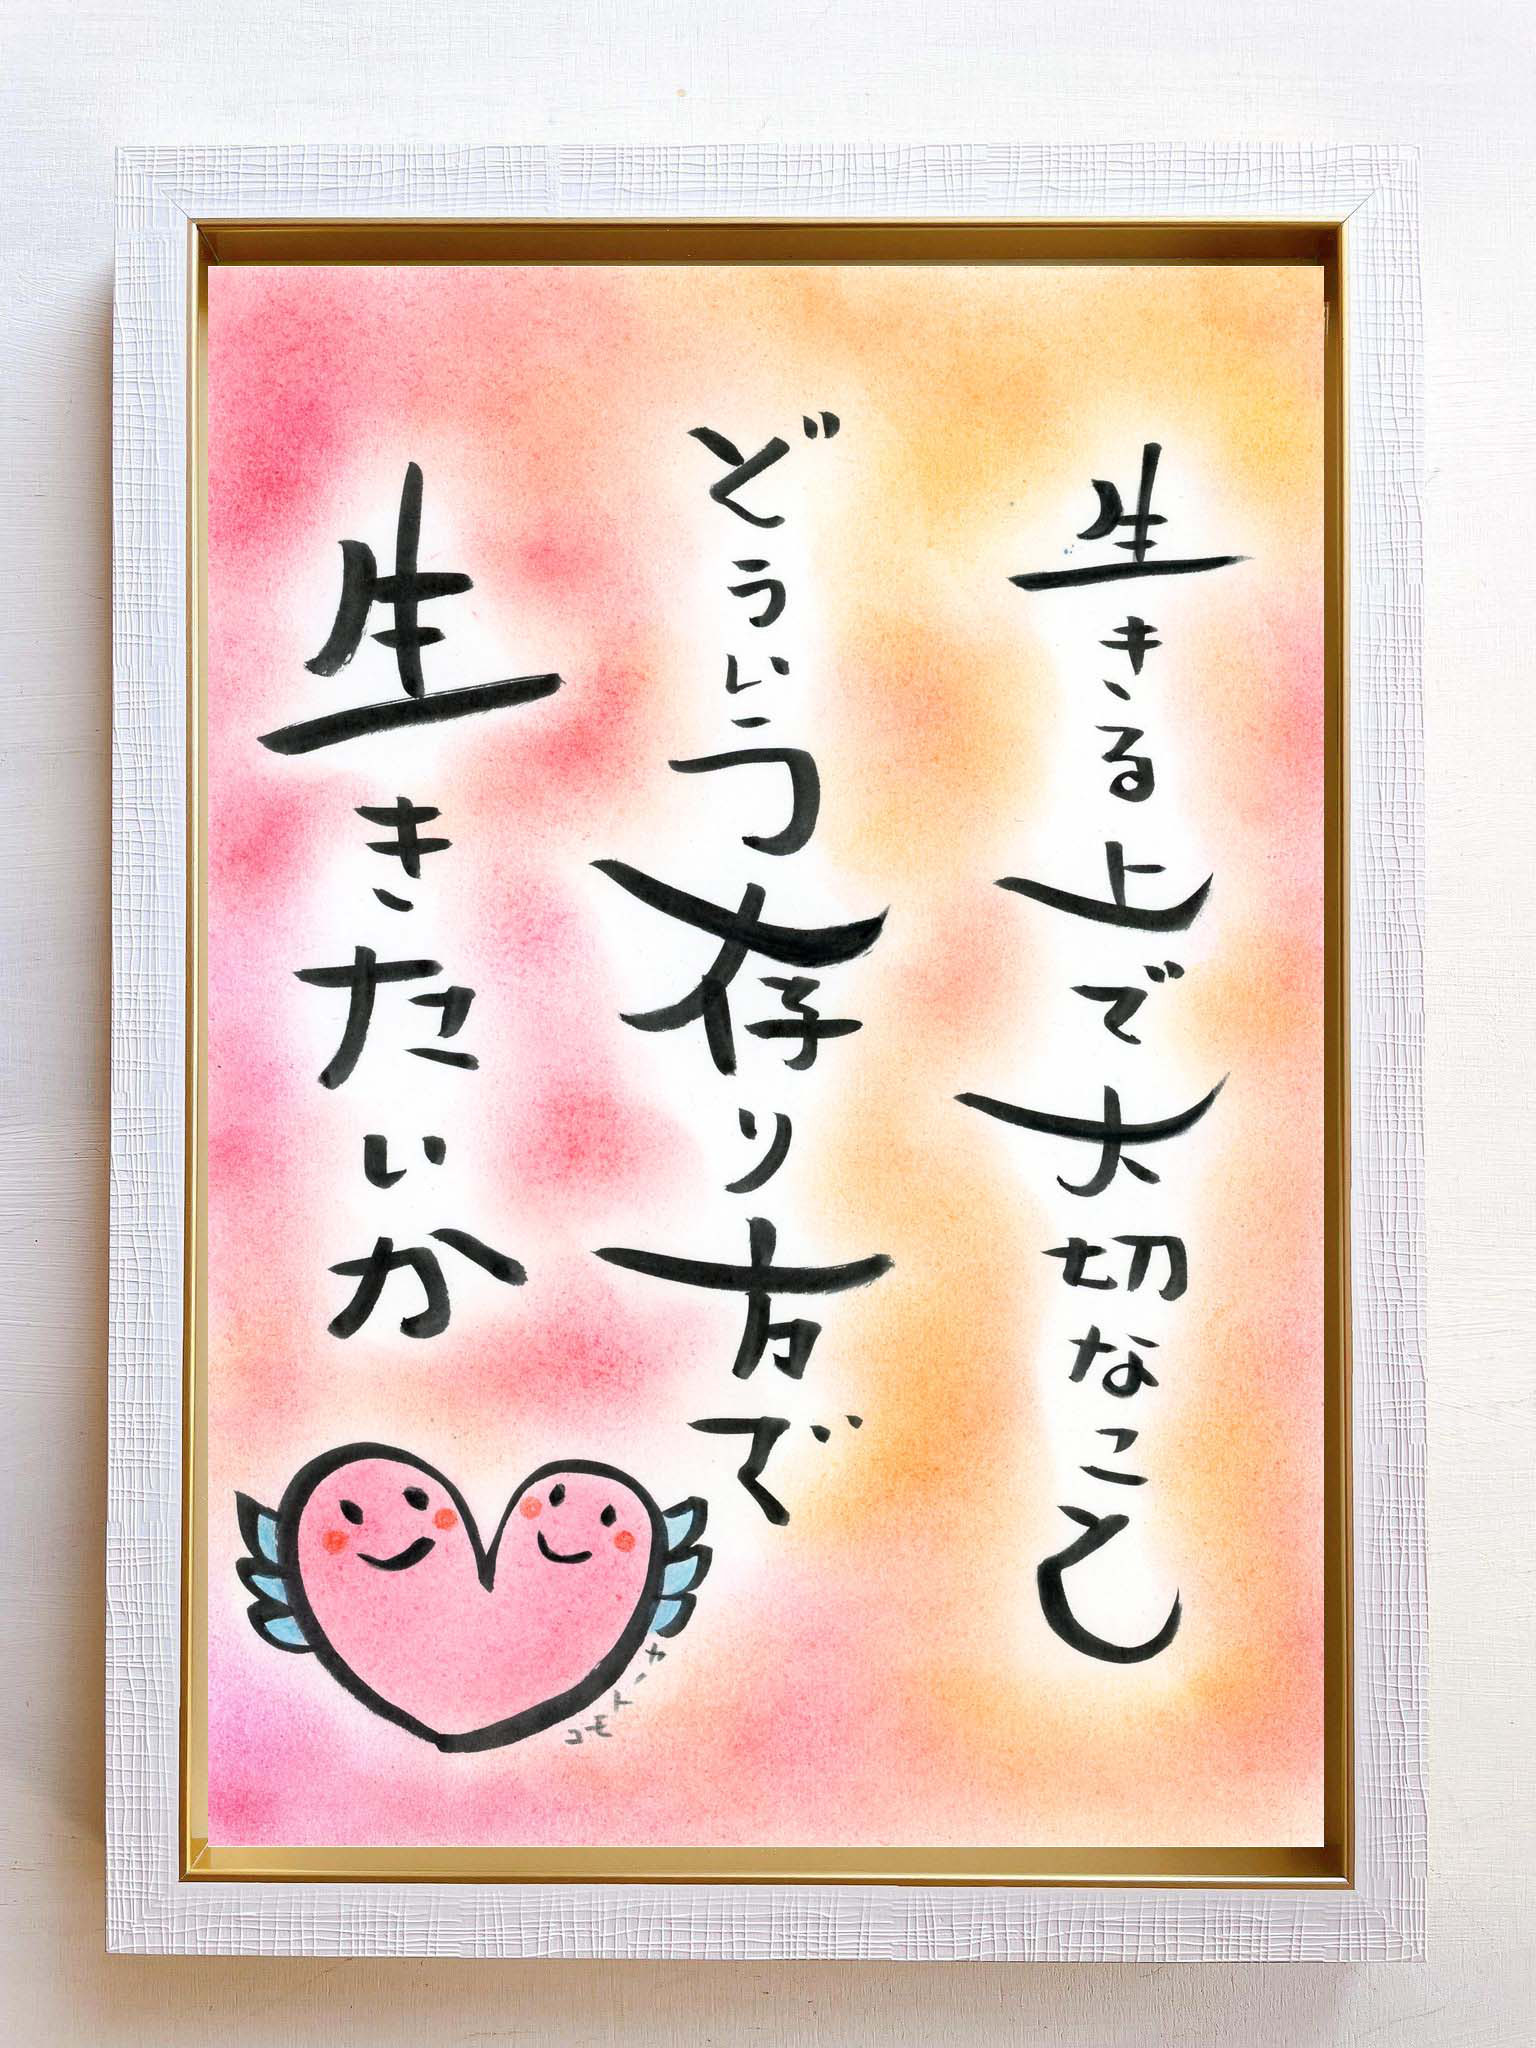 生きる上で大切なこと
どういう存り方で
生きたいか
カートモコ